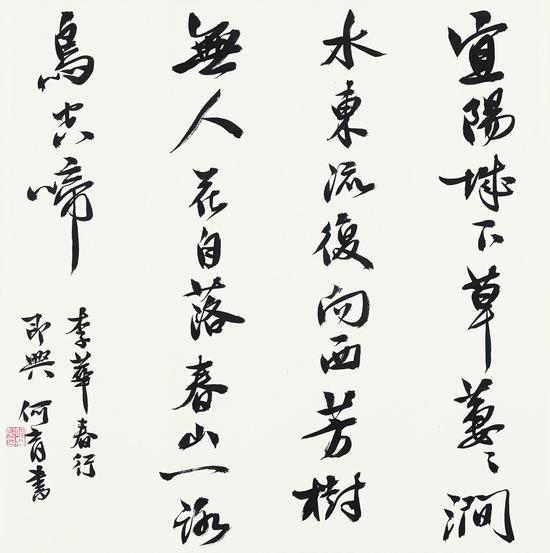 宜陽城下草萋々澗
水東流復向西芳樹
無人花自落春山一路
鳥空啼
李華春行
即興 何育書